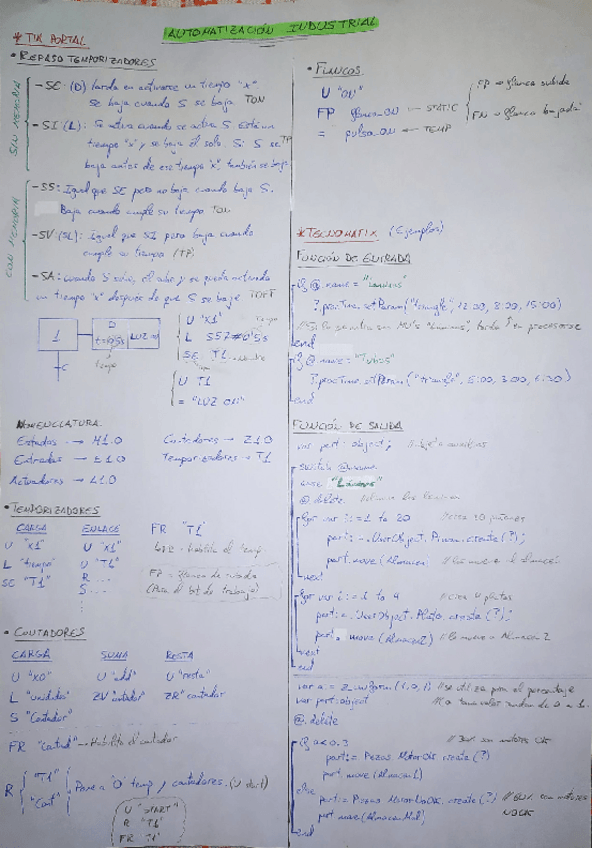 AUTOMATIZACIÓN INDUSTRIAL
* TIA PORTAL
• REPASO TEMPORIZADORES
SIN MEMORIA
- SE: (D) tarda en activarse un tiempo "x".
Se baja cuando S se baja TON
- SI: (L): Se activa cuando se activa S. Está un
tiempo "x" y se baja él solo. Si S se TP
baja antes de ese tiempo "x", también se baja
CON MEMORIA
- SS: Igual que SE pero no baja cuando baja S.
Baja cuando cumple su tiempo TON
- SV (SL): Igual que SI pero baja cuando
cumple su tiempo (TP)
- SA: cuando S se
un tiempo "x" después de que S se baje TOFF
1
D
LUZ
tiempo
U "X1"
L S5T#0'5s
SE T1
U T1
= "LUZ ON"
NOMENCLATURA
Estados → M1.0
Contadores → Z10
Entradas → E1.0
Temporizadores → T1
Actuadores → A1.0
• TEMPORIZADORES
CARGA ENLACE FR "T1"
U "X1" U "X1"
L "tiempo" U "T1"
SE "T1" R ...
S ...
FP = flanco de subida
(Para el bit de trabajo)
• CONTADORES
CARGA SUMA RESTA
U "X0" U "add" U "resta"
L "unidades" ZV "contador" ZR "contador"
S "Contador"
FR "contad" → Habilita el contador
R "T1" "Cont" Pone a '0' temp y contadores. (U start)
U "START"
R "T1"
FR "T1"
• FLANCOS
U "ON"
FP flanco_ON ← STATIC
= pulso_ON ← TEMP
FP → flanco subida
FN → flanco bajada
* TECNOMATIX (Ejemplos)
FUNCIÓN DE ENTRADA
if @.name = "Laminas"
?.procTime.setParam("triangle", 12:00, 8:00, 15:00)
end
if @.name = "Tubos"
?.procTime.setParam("triangle", 5:00, 3:00, 6:30)
end
FUNCIÓN DE SALIDA
var part: object; // objeto
switch @.name
case "Láminas"
@.delete // elimina las láminas
for var i:=1 to 20 // crea 20
part:= .UserObject. .create(?);
part.move(Almacen)
next
for var i:=1 to 4 // crea 4 platos
part:= .UserObject.Plato.create(?);
part.move(Almacen2) // lo mueve a Almacen 2
next
end
var a := z_uniform(1,0,1) // se utiliza para el porcentaje
var part: object
@.delete
if a<0.3
part:= Piezas. MotorOk.create(?)
part.move(Almacen1)
else
part:= Piezas. MotorNoOK.create(?)
part.move(AlmacenMal)
end